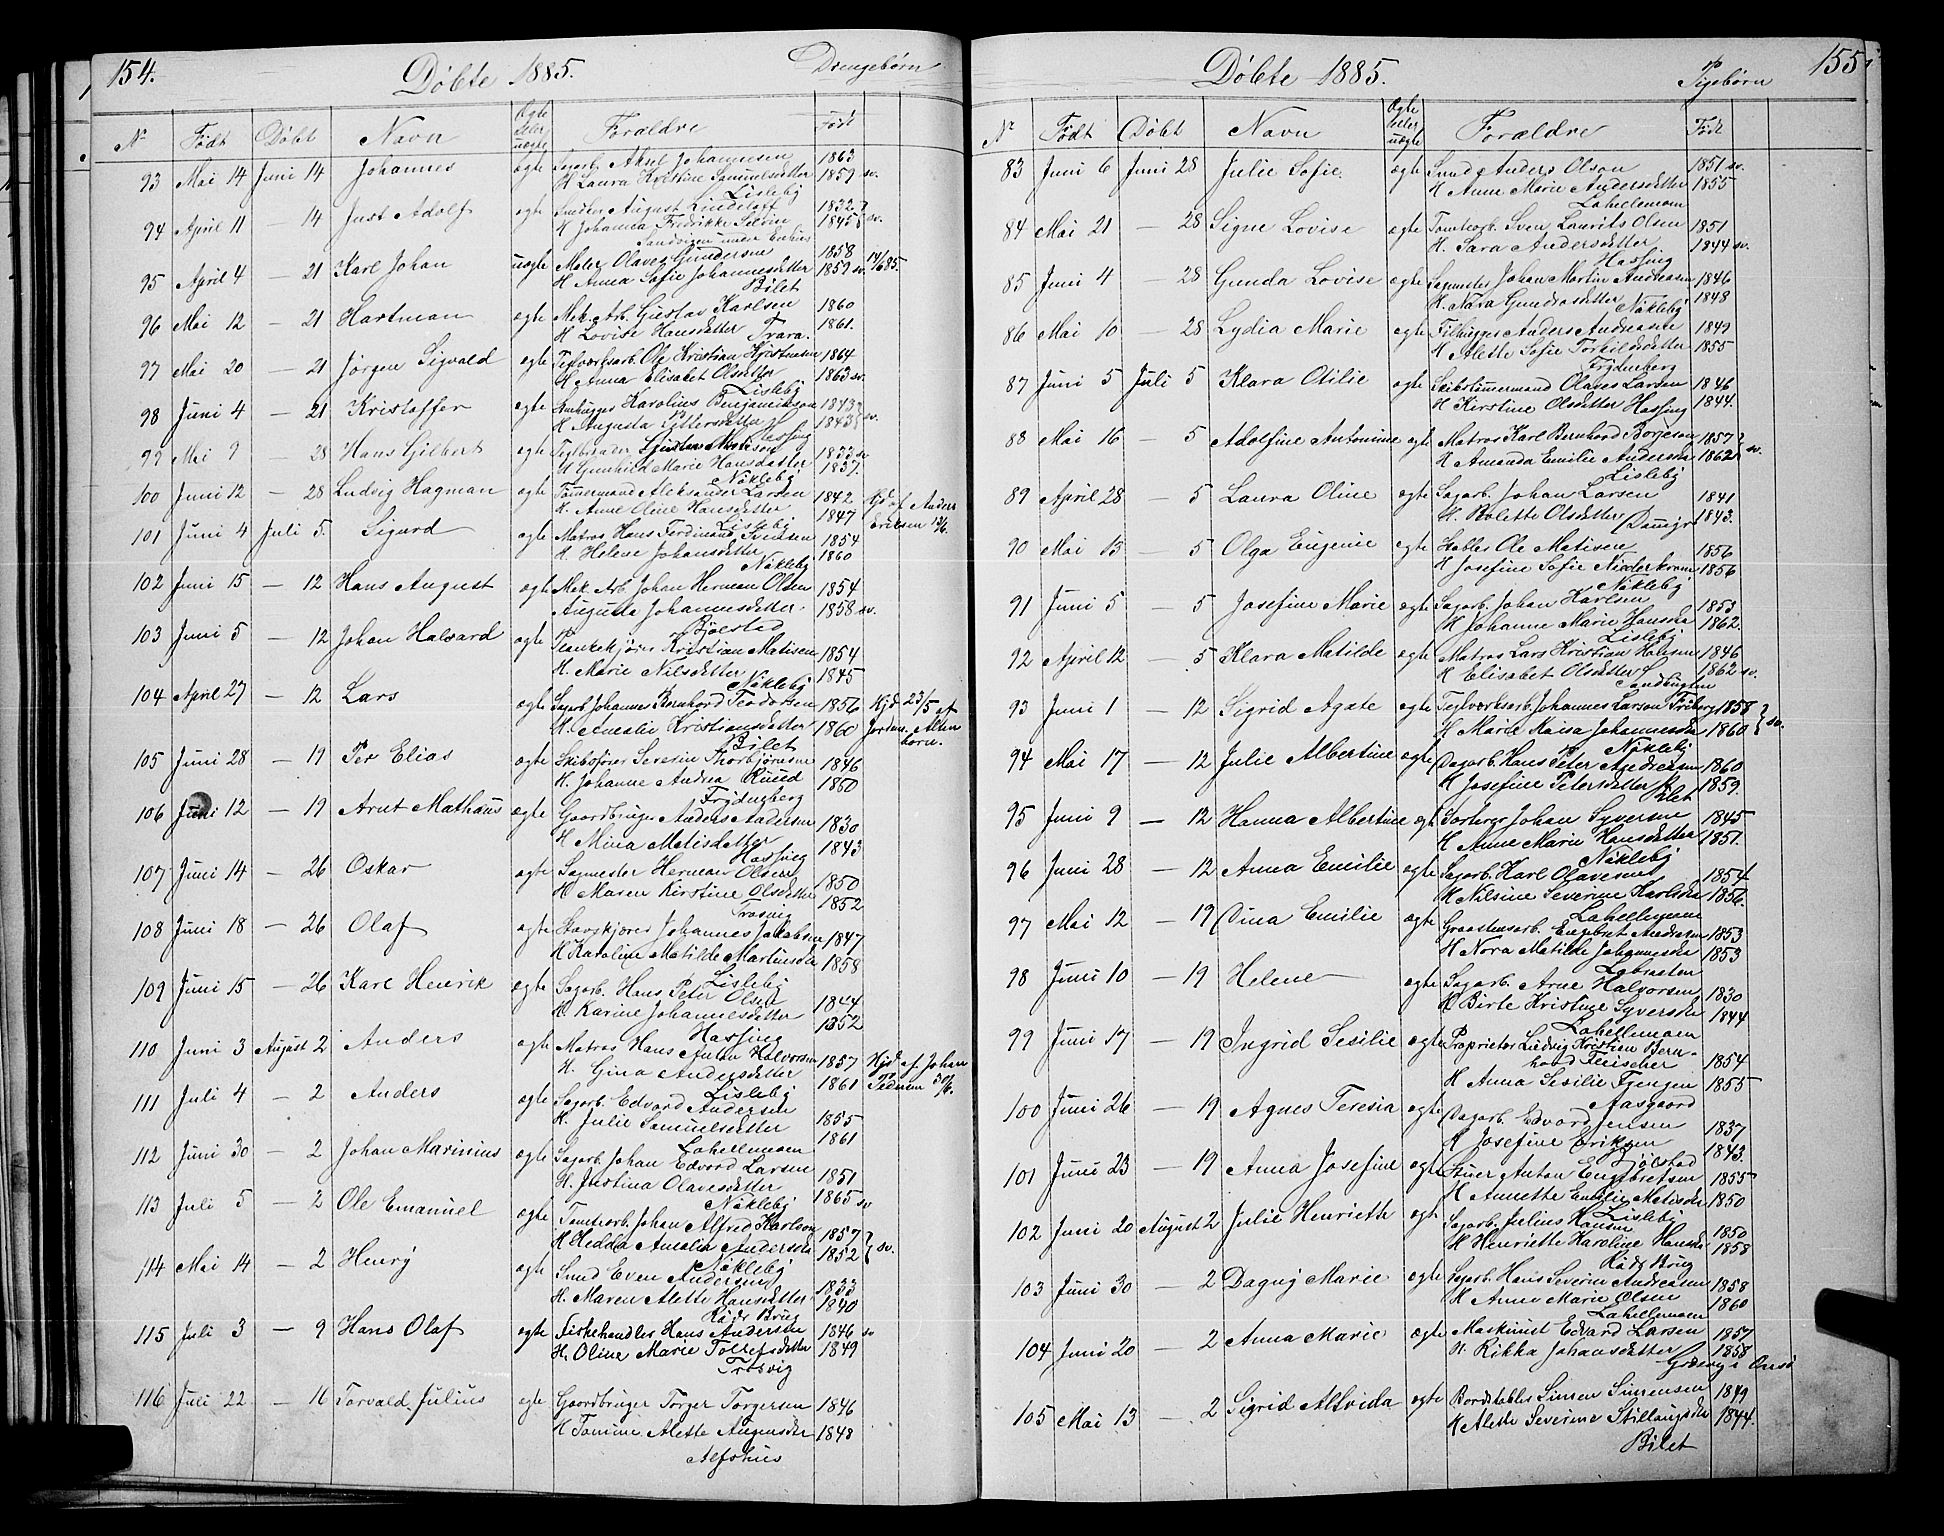 154. Döbte 1885. Drengebörn
Nr Födt Döbt Navn Ægte eller uægte Forældre Födt
93 Mai 14 Juni 14 Johannes ægte Sagarb. Aksel Johannesen 1863
H Laura Kristine Samuelsdatter 1859 sv.
Lisleby
94 April 11 — 14 Just Adolf ægte August Lindeloff 1832
H Johanna Fredrikke 1845 sv.
95 April 4 — 21 Karl Johan uægte Maler Olaves Gundersen 1858 14/6 85.
H Anna Sofie Johannesdatter 1859 sv.
Bilet
96 Mai 12 — 21 Hartman ægte Mek. Arb. Gustav Karlsen 1860
H Lovise Hansdatter Trara. 1861.
97 Mai 20 — 21 Jörgen Sigvald ægte Teglværksarb. Ole Kristian Kristensen 1864
H Anna Elisabet Olsdatter 1863 sv.
Lisleby
98 Juni 4 — 21 Kristoffer ægte Karolius Benjaminsen 1843
H Augusta Pettersdatter 1843 sv.
Hassing
99 Mai 9 — 28 Hans Gilbert ægte 1833 sv
H Gunhild Marie Hansdatter 1837.
Nökleby
100 Juni 12 — 28 Ludvig Hagman ægte Tömmermand Aleksander Larsen 1842 Hjd af Anders
H. Anne Oline Hansdatter 1847 Eriksen
Lisleby
101 Juni 4 Juli 5. Sigurd ægte Matros Hans Ferdinand Svensen 1854
H Helene Johansdatter 1860
Nökleby
102 Juni 15 — 12 Hans August ægte Mek. Arb Johan Herman Olsen 1854
Augusta Johannesdatter. 1858 sv.
Bjölstad
103 Juni 5 — 12 Johan Halvard ægte Plankekjörer Kristian Matisen 1854
H. Marie Nilsdatter 1845
Nökleby
104 April 27 — 12 Lars ægte Sagarb Johannes Bernhard Teodorsen 1856 Hjd 23/5 af
H. Amalie Kristiansdatter 1860 Jordm. Alten
Bilet born.
105 Juni 28 — 19 Per Elias ægte Skibsförer Severin Thorbjörnsen 1846
H. Johanne Andrea Ruud 1860
Frydenberg
106 Juni 12 — 19 Arnt Mathæus ægte Gaardbruger Anders Andersen 1830
H Mina Matisdatter 1843
Hassing
107 Juni 14 — 26 Oskar ægte Sagmester Herman Olsen 1850
H Maren Kirstine Olsdatter 1852
Trosvig
108 Juni 18 — 26 Olaf ægte Stavskjörer Johannes Jakobsen 1847
H Karoline Matilde Martinsda 1858
Lisleby
109 Juni 15 — 26 Karl Henrik ægte Sagarb. Hans Peter Olsen 1844
H Karine Johannesdatter 1852
Hassing
110 Juni 3 August 2 Anders ægte Matros Hans Anton Halvorsen 1857 Hjd af Johan
H. Gina Andersdatter 1861 Pedersen 30/6.
Lisleby
111 Juli 4 — 2 Anders ægte Sagarb Edvard Andersen 1855
H. Julie Samuelsdatter 1861
Lahellemoen
112 Juni 30 — 2 Johan Marinius ægte Sagarb. Johan Edvard Larsen 1851
H. Justina Olavesdatter 1865 sv
Nökleby
113 Juli 5 — 2 Ole Emanuel ægte Tomtearb. Johan Alfred Karlson 1857
H Hedda Amalia Andersda 1852 sv.
Nökleby
114 Mai 14 — 2 Henry ægte Smed Even Andersen 1833
H. Maren Alette Hansdatter 1840
Råds Brug
115 Juli 3 — 9 Hans Olaf ægte Fiskehandler Hans Andersen 1846 sv
H. Oline Marie Tollefsdatter 1849
Trosvig
116 Juli 22 — 16 Torvald Julius ægte Gaardbruger Torger Torgersen 1846
H Tomine Alette Augensdtr 1848
Alfshus
Döbte 1885. Pigebörn 155
Nr Födt Döbt Navn Ægte eller uægte Forældre Födt
83 Juni 6 Juni 28 Julie Sofie. ægte Smed Anders Olson 1851 sv.
H Anne Marie Andersdatter 1855
Lahellemoen
84 Mai 21 — 28 Signe Lovise ægte Tomtearb. Sven Laurits Olsen 1851
H. Sara Andersdatter 1844 sv.
Hassing
85 Juni 4 — 28 Gunda Lovise ægte Sagmester Johan Martin Andreasen 1846
H. Nara Gundrosdatter 1848
Nökleby
86 Mai 10 — 28 Lydia Marie ægte Filhugger Anders Andreasen 1849
H Alette Sofie Torkildsdatter 1855
Frydenberg
87 Juni 5 Juli 5 Klara Otilie ægte Skibstömmermand Olaves Larsen 1846
H Kirstine Olsdatter Hassing 1844.
88 Mai 16 — 5 Adolfine Antonine ægte Matros Karl Bernhard Borjeson 1857
H Amanda Emilie Andersda 1862 sv.
Lisleby
89 April 28 — 5 Laura Oline ægte Sagarb. Johan Larsen 1841
H. Bolette Olsdatter 1843.
90 Mai 13 — 5 Olga Eugenie ægte Stabler Ole Matisen 1856
H Josefine Sofie 1856
Nökleby
91 Juni 5 — 5 Josefine Marie ægte Sagarb. Johan Karlsen 1853
H Johanne Marie Hansda 1862.
Lisleby
92 April 12 — 5 Klara Matilde ægte Matros Lars Kristian Hansen 1846
H Elisabet Olsdatter 1862 sv.
Sandbugten
93 Juni 1 — 12 Sigrid Agate ægte Teglværksarb. Johannes Larson Friberg 1858
H Maria Maisa Johannesda 1860 sv.
Nökleby
94 Mai 17 — 12 Julie Albertine ægte Dagarb. Hans Peter Andreasen 1860
H Josefine Petersdatter 1859.
Bilet
95 Juni 9 — 12 Hanna Albertine ægt Johan Syversen 1845
H Anne Marie Hansdatter 1851.
Nökleby
96 Juni 28 — 12 Anna Emilie ægte Sagarb. Karl Olavesen 1854
H Nilsine Severine Karlsda 1856.
Lahellemoen
97 Mai 12 — 19 Dina Emilie ægte Graastensarb. Engebret Andreasen 1853
H Nora Matilde Johannesda 1853
Labraaten
98 Juni 10 — 19 Helene ægte Sagarb. Arne Halvorsen 1830
H Birte Kristine Syversda 1844
Lahellemoen
99 Juni 17 — 19 Ingrid Sesilie ægte Proprietær Ludvig Kristian Bern-
hard Fleischer 1854
H Anna Sesilie Fjengen 1855
Aasgaard
100 Juni 26 — 19 Agnes Teresia ægte Dagarb. Edvard Jensen 1837
H Josefine Eriksen 1843.
Bjölstad
101 Juni 23 — 19 Anna Josefine ægte Stuer Anton Engebretsen 1855
H Annette Emilie Matisda 1850
Lisleby
102 Juni 20 August 2 Julie Henriette ægte Sagarb. Julius Hansen 1850
H Henriette Karoline Hansda 1858
Råds Brug
103 Juni 30 — 2 Dagny Marie ægte Sagarb. Hans Severin Andreasen 1858
H Anne Marie Olsen 1860
Lahellemoen
104 Juni 20 — 2 Anna Marie ægte Maskinist Edvard Larsen 1857
H. Rikka Johansdatter 1858
105 Mai 13 — 2 Sigrid Alfvida ægte Bordstabler Simen Simensen 1849
H Alette Severine Stillaugsda 1844.
Bilet